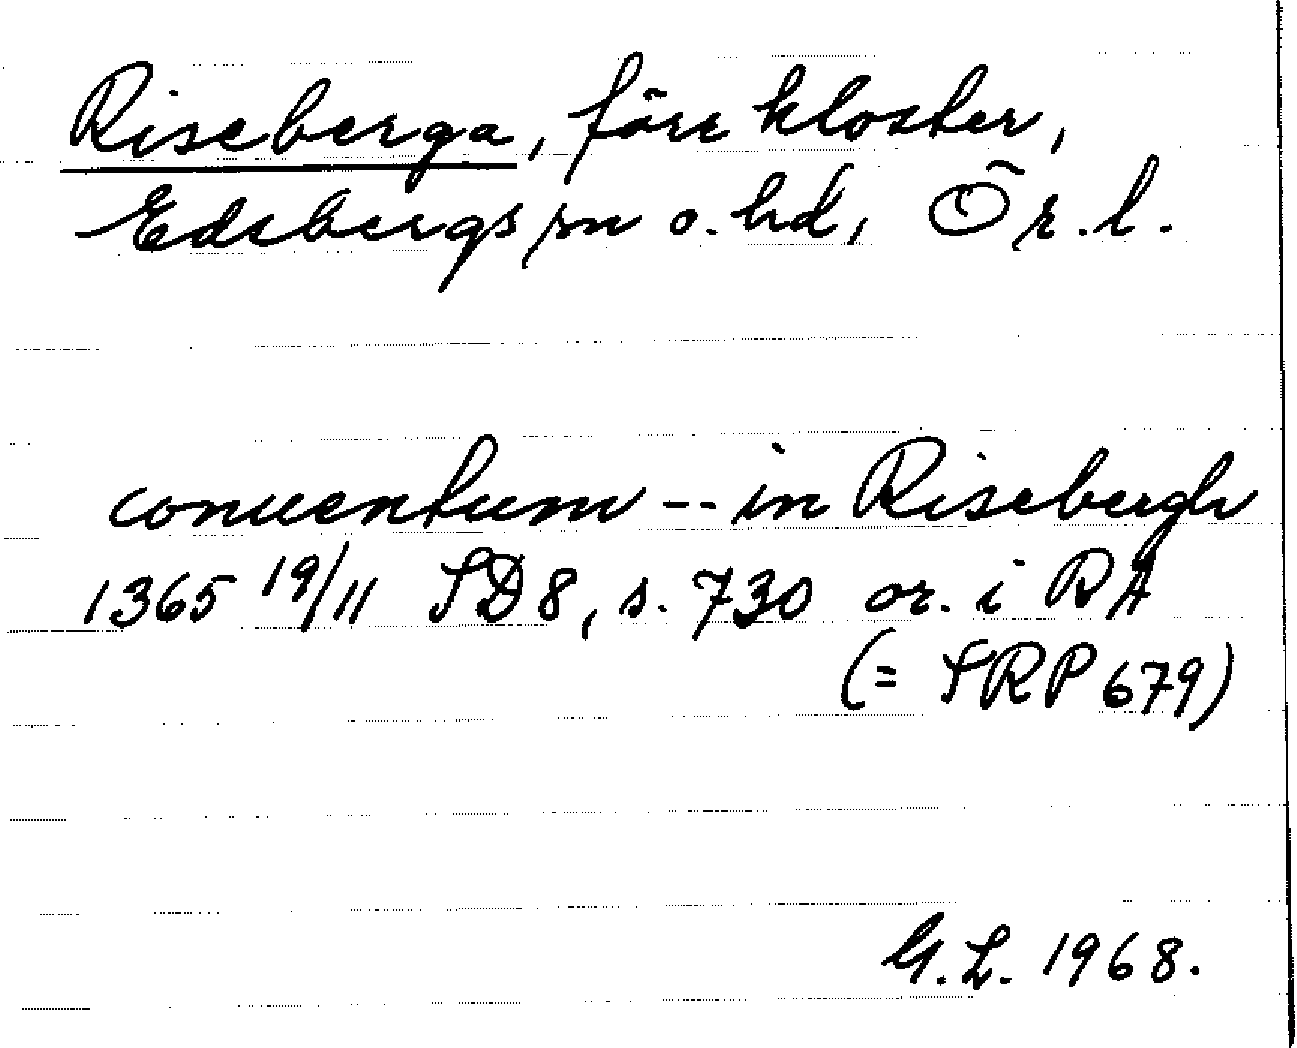 Riseberga, före kloster,
Edsbergs sn o. hd, Ör. l.
conuentum -- in Risebergh
1365 19/11 SD 8, s. 730 or. i RA
(= SRP 679)
G. L. 1968.